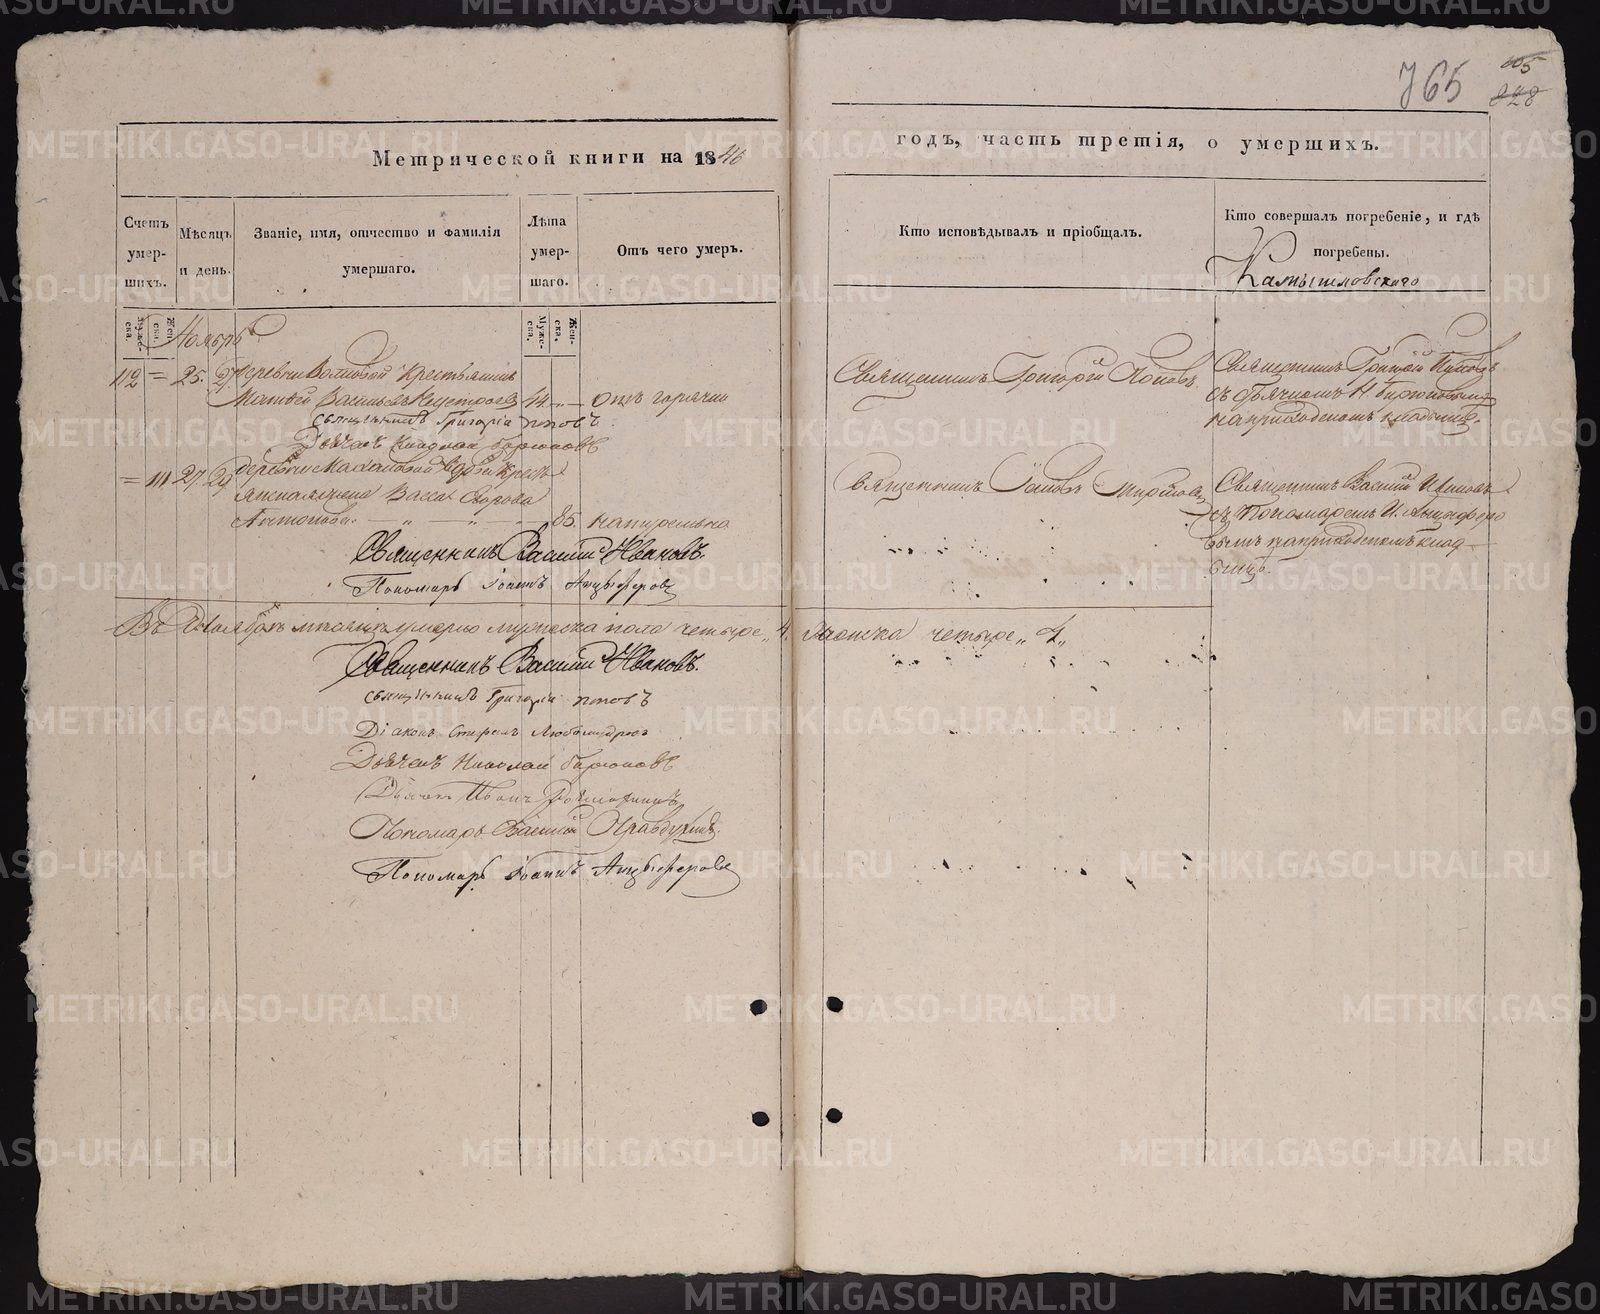 765
605
828
Метрической книги на 1846
годъ, часть третія, о умершихъ.
Счетъ умер-шихъ.
Мѣсяцъ и день.
Званіе, имя, отчество и фамилія умершаго.
Лѣта умер-шаго.
Отъ чего умеръ.
Кто исповѣдывалъ и пріобщалъ.
Кто совершалъ погребеніе, и гдѣ погребены.
Камышловскаго
Муже-ска.
Жен-ска.
Муже-ска.
Жен-ска.
Ноябрь
112 = 25. 27. Деревни Волковой Крестьянинъ
Матѳей Васильевъ 44 отъ горячки
Священникъ Григорій Поповъ
Дьячекъ Николай Бирюковъ
Священникъ Григорій Поповъ.
Священникъ Григорій Поповъ
съ дьячкомъ Н. Бирюковымъ
на приходскомъ кладбищѣ.
= 111 27. 29 Деревни вдова Кресть
янская жена Васса
Антонова. 85. натурально
Священникъ Василій Ивановъ.
Пономарь Іоаннъ Анцыферовъ
Священникъ
Священникъ Василій Ивановъ
съ Пономаремъ И. Анцыферо
вымъ на приходскомъ клад
бищѣ.
Въ Ноябрѣ мѣсяцѣ умерло мужеска пола четыре „4. Женска четыре „4„
Священникъ Василій Ивановъ.
Священникъ Григорій Поповъ
Діаконъ Стефанъ Любомудровъ
Дьячекъ Николай Бирюковъ
Дьячекъ Иванъ
Пономарь Василій Правдухинъ.
Пономарь Іоаннъ Анцыферовъ
METRIKI.GASO-URAL.RU